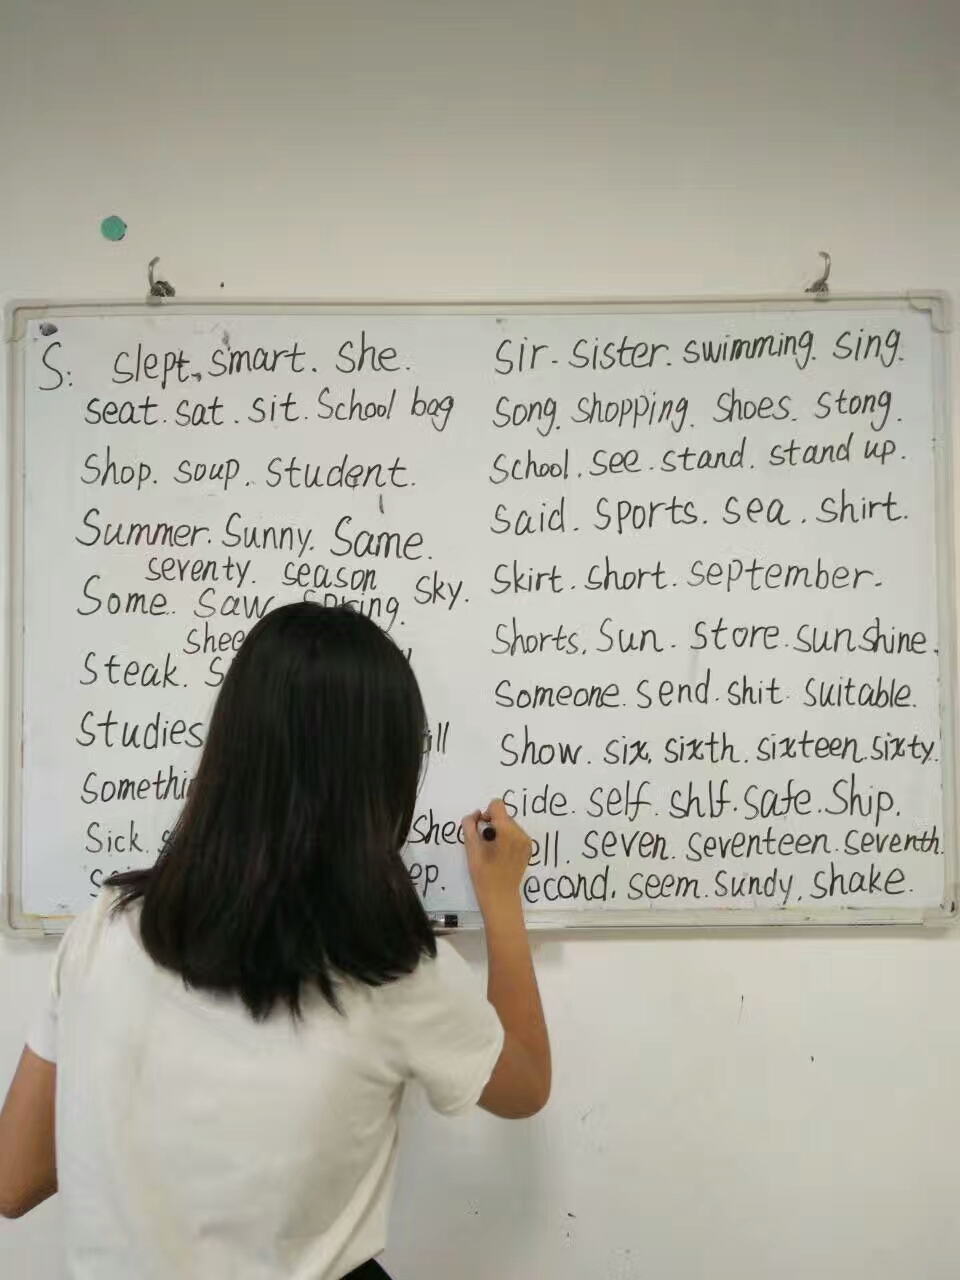 S: slept, smart. She.
seat. sat. sit. School bag
Shop. soup. student.
Summer. Sunny. Same.
seventy. season
Some. saw. spring. sky.
Steak.
Studies
Sick.
Sir. Sister. swimming. sing.
Song. shopping. shoes. stong.
School. see. stand. stand up.
Said. sports. sea. shirt.
Skirt. short. september.
Shorts, Sun. store. sunshine.
Someone. send. shit. suitable.
Show. six, sixth. sixteen. sixty.
side. self. shlf. Safe. Ship.
ell. seven. seventeen. seventh.
econd. seem. sundy, shake.